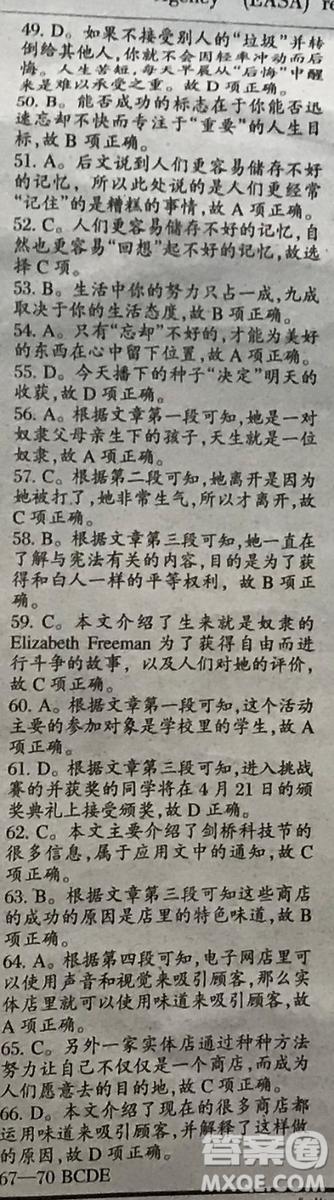 (EASA) re
49. D。如果不接受别人的“垃圾”并转
倒给其他人，你就不会因轻率冲动而后
悔。人生苦短，每天早晨从“后悔”中醒
来是难以承受之重。故 D 项正确。
50. B。能否成功的标志在于你能否迅
速忘却不快而专注于“重要”的人生目
标，故 B 项正确。
51. A。后文说到人们更容易储存不好
的记忆，所以此处说的是人们更经常
“记住”的是糟糕的事情，故 A 项正确。
52. C。人们更容易储存不好的记忆，自
然也更容易“回想”起不好的记忆，故选
择 C 项。
53. B。生活中你的努力只占一成，九成
取决于你的生活态度，故 B 项正确。
54. A。只有“忘却”不好的，才能为美好
的东西在心中留下位置，故 A 项正确。
55. D。今天播下的种子“决定”明天的
收获，故 D 项正确。
56. A。根据文章第一段可知，她是一对
奴隶父母亲生下的孩子，天生就是一位
奴隶，故 A 项正确。
57. C。根据第二段可知，她离开是因为
她被打了，她非常生气，所以才离开，故
C 项正确。
58. B。根据文章第三段可知，她一直在
了解与宪法有关的内容，目的是为了获
得和白人一样的平等权利，故 B 项正
确。
59. C。本文介绍了生来就是奴隶的
Elizabeth Freeman 为了获得自由而进
行斗争的故事，以及人们对她的评价，
故 C 项正确。
60. A。根据文章第一段可知，这个活动
主要的参加对象是学校里的学生，故 A
项正确。
61. D。根据文章第三段可知，进入挑战
赛的并获奖的同学将在 4 月 21 日的颁
奖典礼上接受颁奖，故 D 正确。
62. C。本文主要介绍了剑桥科技节的
很多信息，属于应用文中的通知，故 C
项正确。
63. B。根据文章第三段可知这些商店
的成功的原因是店里的特色味道，故 B
项正确。
64. A。根据第四段可知，电子网店里可
以使用声音和视觉来吸引顾客，那么实
体店里就可以使用味道来吸引顾客，故
A 项正确。
65. C。另外一家实体店通过种种方法
努力让自己不仅仅是一个商店，而成为
人们愿意去的目的地，故 C 项正确。
66. D。本文介绍了现在的很多商店都
运用味道来吸引顾客，并解释了这样做
的原因，故 D 项正确。
67—70 BCDE
答案圈
MXQE.COM